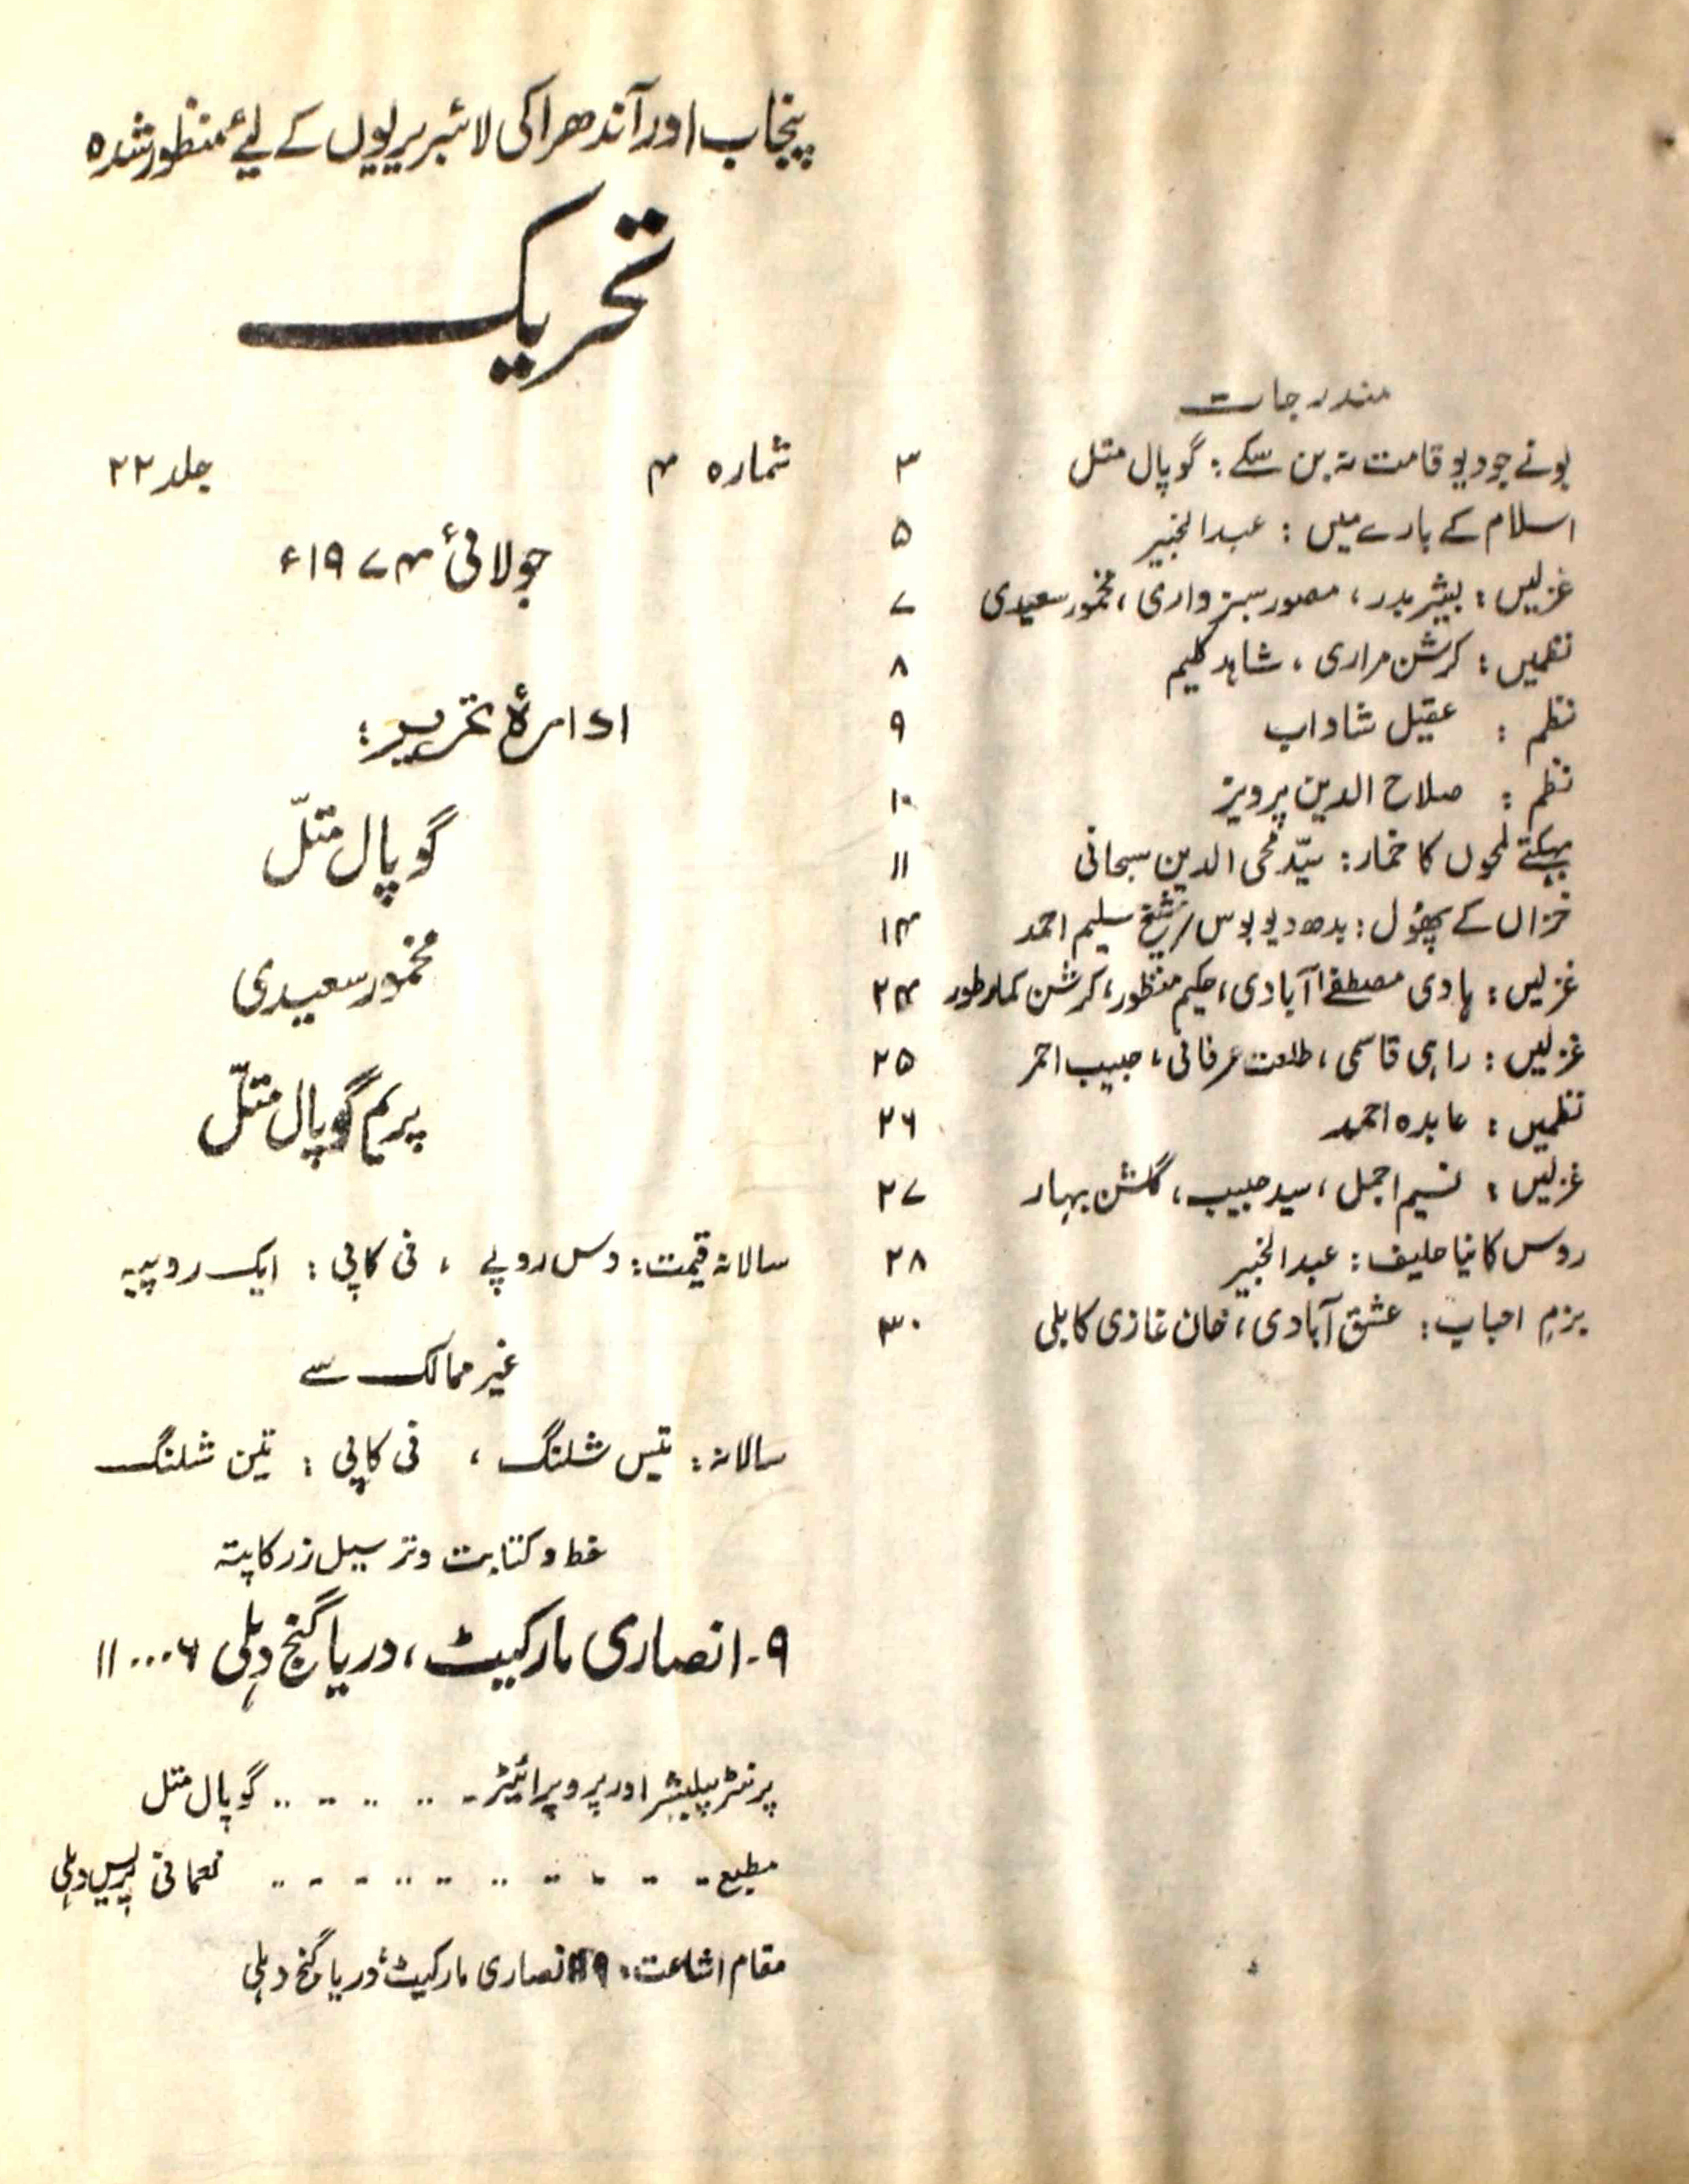 پنجاب اور آندھرا کی لائبریریوں کے لئے منظور شدہ
تحریک
جلد ۲۲ شمارہ ۴
جولائی ۱۹۷۴ء
ادارۂ تحریر:
گوپال متلّ
مخمور سعیدی
پریم گوپال متلّ
سالانہ قیمت: دس روپے ، فی کاپی: ایک روپیہ
غیر ممالک سے
سالانہ: تیس شلنگ ، فی کاپی: تین شلنگ
خط و کتابت و ترسیل زر کا پتہ
۹-انصاری مارکیٹ، دریا گنج دہلی ۱۱۰۰۰۶
پرنٹر پبلیشر اور پروپرائیٹر - .. .. .. .. گوپال متل
مطبع - .. .. .. .. .. .. .. .. نعمانی پریس دہلی
مقام اشاعت: ۹ انصاری مارکیٹ، دریا گنج دہلی
مندرجات
بونے جو دیو قامت نہ بن سکے: گوپال متل ۳
اسلام کے بارے میں: عبدالخبیر ۵
غزلیں: بشیر بدر، مصور سبزواری، مخمور سعیدی ۷
نظمیں: کرشن مراری، شاہد کلیم ۸
نظم: عقیل شاداب ۹
نظم: صلاح الدین پرویز ۱۰
بہکتے لمحوں کا خمار: سیّد محی الدین سبحانی ۱۱
خزاں کے پھول: بدھ دیو بوس/شیخ سلیم احمد ۱۴
غزلیں: ہادی مصطفےٰ آبادی، حکیم منظور، کرشن کمار طور ۲۴
غزلیں: راہی قاسمی، طلعت عرفانی، حبیب احمر ۲۵
نظمیں: عابدہ احمد ۲۶
غزلیں: نسیم اجمل، سید حبیب، گلشن بہار ۲۷
روس کا نیا حلیف: عبدالخبیر ۲۸
بزم احباب: عشق آبادی، خان غازی کابلی ۳۰